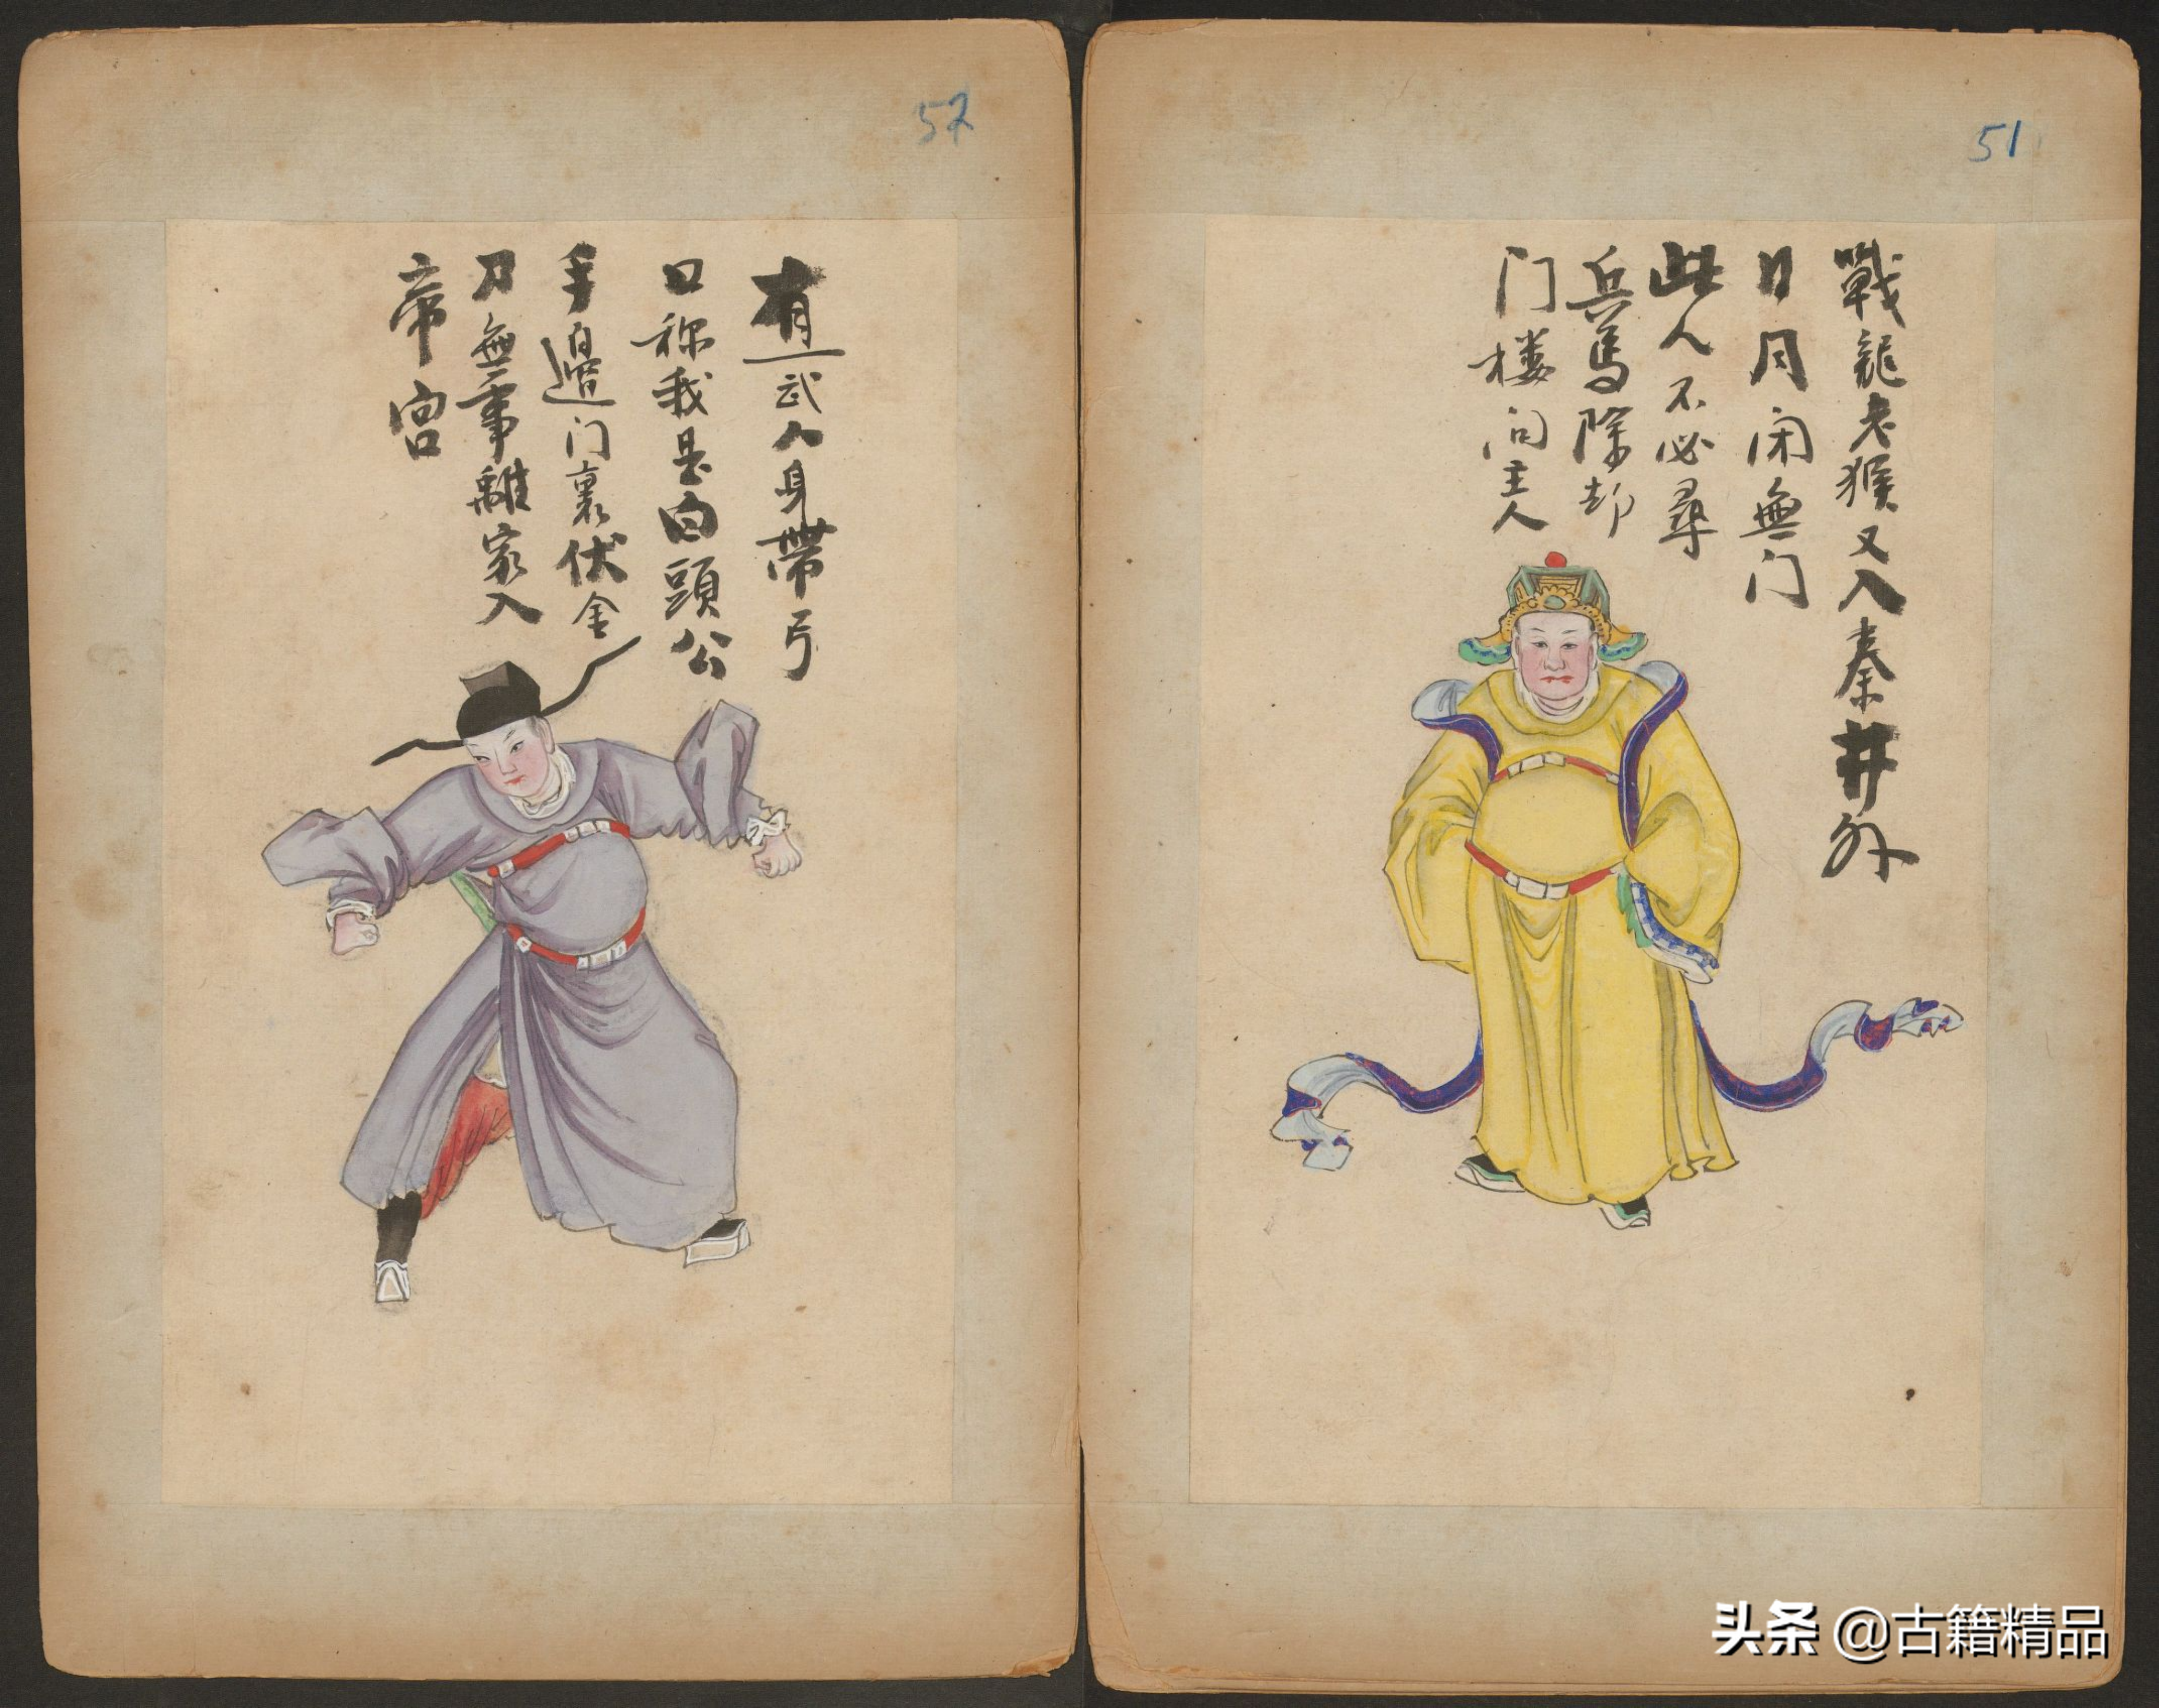 51
戰龍老猴又入秦井外
日月闭無门
此人不必尋
兵馬除却
门楼问主人
52
有一武人身帶弓
口称我是白頭公
手邉门裏伏金
刀無事離家入
帝宫
头条 @古籍精品